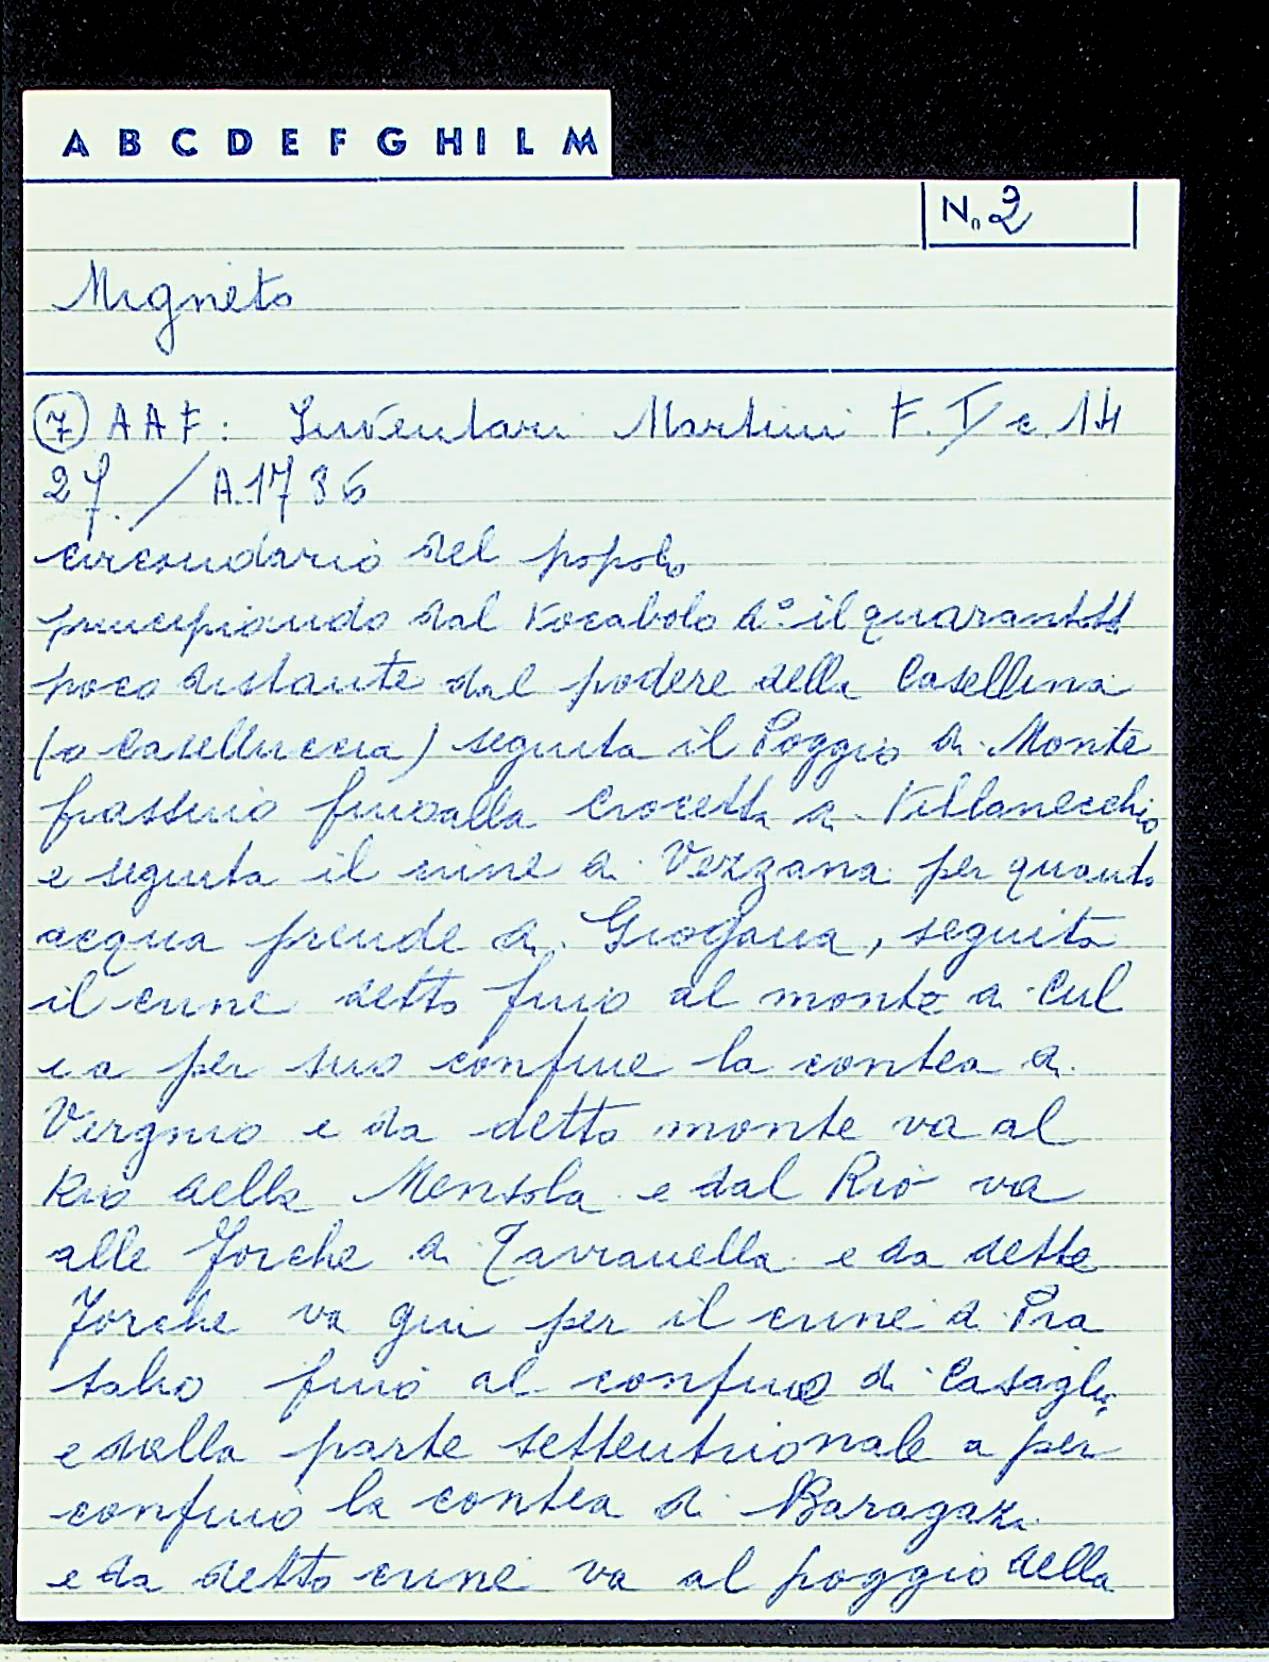 A B C D E F G H I L M
N. 2
Migneto
7 AAF: Inventari Martini F. I c. 14
27. / A. 1736
circondario del popolo
principiando dal Vocabolo d° il quarantotto
poco distante dal podere della Casellina
(o Caselluccia) seguita il Poggio di Monte
frassino fino alla Crocetta di Villanecchio
e seguita il crine di Vezzana per quanto
acqua prende di Giogana, seguita
il crine detto fino al monte di Cul
i a per suo confine la contea di
Vergnio e da detto monte va al
Rio della Mensola e dal Rio va
alle Forche di Tavianella e da dette
Forche va giù per il crine di Pra
talto fino al confine di Casaglia
e dalla parte settentrionale a per
confino la contea di Baragazi
e da detto crine va al poggio della